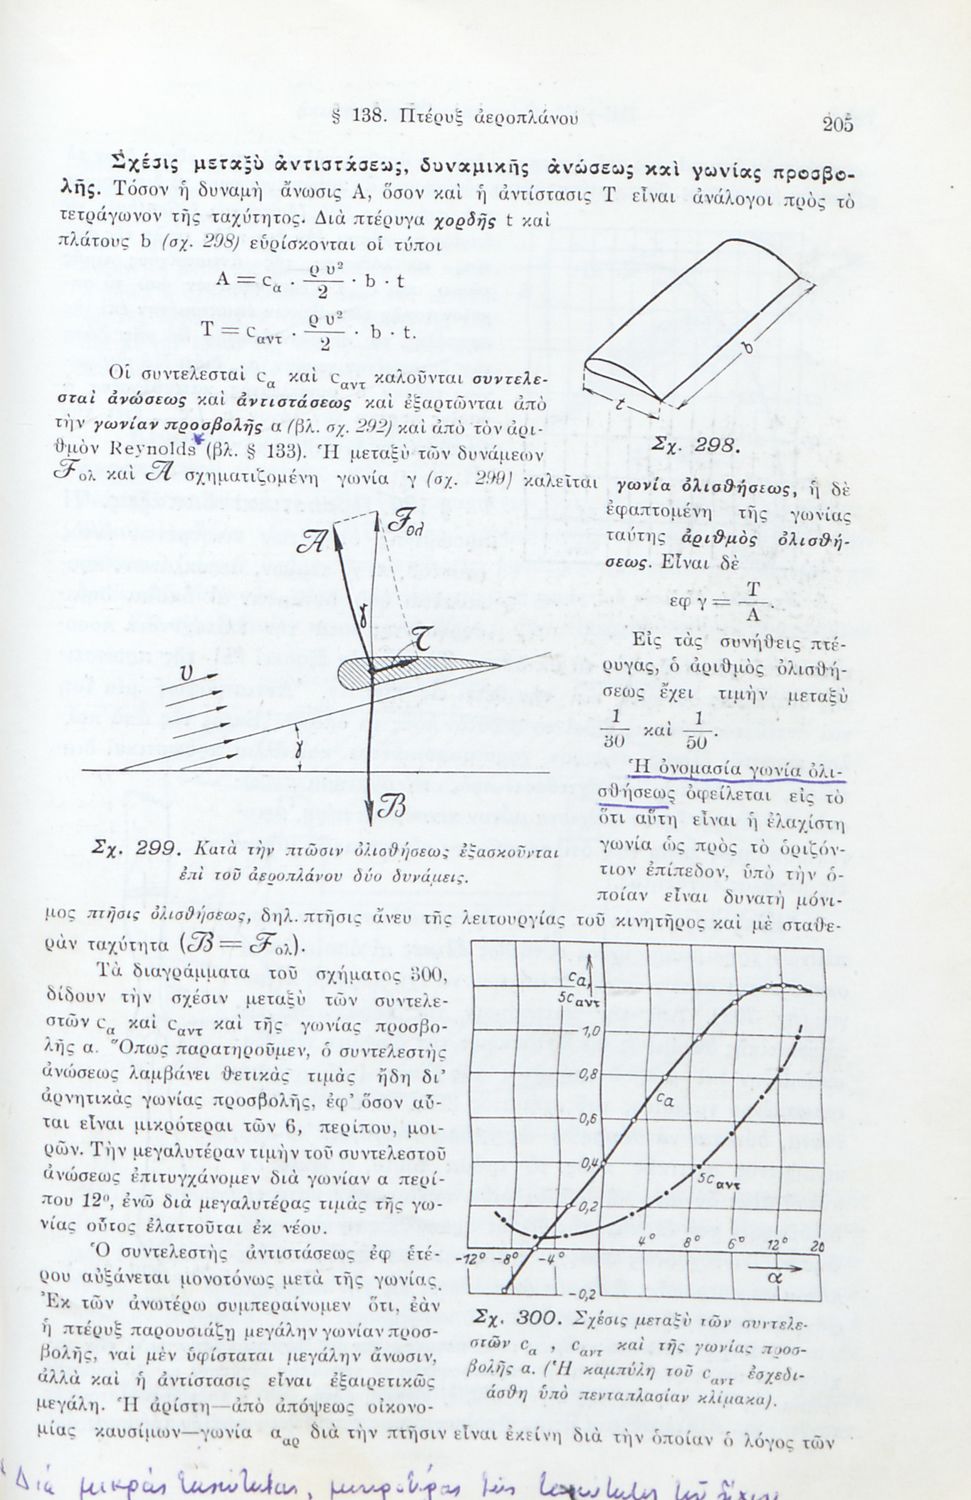 § 138. Πτέρυξ ἀεροπλάνου
205
Σχέσις μεταξὺ ἀντιστάσεως, δυναμικῆς ἀνώσεως καὶ γωνίας προσβο-
λῆς. Τόσον ἡ δυναμὴ ἄνωσις A, ὅσον καὶ ἡ ἀντίστασις T εἶναι ἀνάλογοι πρὸς τὸ
τετράγωνον τῆς ταχύτητος. Διὰ πτέρυγα χορδῆς t καὶ
πλάτους b (σχ. 298) εὑρίσκονται οἱ τύποι
A = c_α · ρ υ²/2 · b · t
T = c_αντ · ρ υ²/2 · b · t.
b
t
Σχ. 298.
Οἱ συντελεσταὶ c_α καὶ c_αντ καλοῦνται συντελε-
σταὶ ἀνώσεως καὶ ἀντιστάσεως καὶ ἐξαρτῶνται ἀπὸ
τὴν γωνίαν προσβολῆς α (βλ. σχ. 292) καὶ ἀπὸ τὸν ἀρι-
θμὸν Reynolds (βλ. § 133). Ἡ μεταξὺ τῶν δυνάμεων
F_ολ καὶ A σχηματιζομένη γωνία γ (σχ. 299) καλεῖται γωνία ὀλισθήσεως, ἡ δὲ
ἐφαπτομένη τῆς γωνίας
ταύτης ἀριθμὸς ὀλισθή-
σεως. Εἶναι δὲ
εφ γ = T/A.
Εἰς τὰς συνήθεις πτέ-
ρυγας, ὁ ἀριθμὸς ὀλισθή-
σεως ἔχει τιμὴν μεταξὺ
1/30 καὶ 1/50.
Ἡ ὀνομασία γωνία ὀλι-
σθήσεως ὀφείλεται εἰς τὸ
ὅτι αὕτη εἶναι ἡ ἐλαχίστη
γωνία ὡς πρὸς τὸ ὁριζόν-
τιον ἐπίπεδον, ὑπὸ τὴν ὁ-
ποίαν εἶναι δυνατὴ μόνι-
A
F_ολ
γ
T
υ
γ
B
Σχ. 299. Κατὰ τὴν πτῶσιν ὀλισθήσεως ἐξασκοῦνται
ἐπὶ τοῦ ἀεροπλάνου δύο δυνάμεις.
μος πτῆσις ὀλισθήσεως, δηλ. πτῆσις ἄνευ τῆς λειτουργίας τοῦ κινητῆρος καὶ μὲ σταθε-
ρὰν ταχύτητα (B = F_ολ).
Τὰ διαγράμματα τοῦ σχήματος 300,
δίδουν τὴν σχέσιν μεταξὺ τῶν συντελε-
στῶν c_α καὶ c_αντ καὶ τῆς γωνίας προσβο-
λῆς α. Ὅπως παρατηροῦμεν, ὁ συντελεστὴς
ἀνώσεως λαμβάνει θετικὰς τιμὰς ἤδη δι'
ἀρνητικὰς γωνίας προσβολῆς, ἐφ' ὅσον αὗ-
ται εἶναι μικρότεραι τῶν 6, περίπου, μοι-
ρῶν. Τὴν μεγαλυτέραν τιμὴν τοῦ συντελεστοῦ
ἀνώσεως ἐπιτυγχάνομεν διὰ γωνίαν α περί-
που 12⁰, ἐνῶ διὰ μεγαλυτέρας τιμὰς τῆς γω-
νίας οὗτος ἐλαττοῦται ἐκ νέου.
Ὁ συντελεστὴς ἀντιστάσεως ἐφ ἑτέ-
ρου αὐξάνεται μονοτόνως μετὰ τῆς γωνίας.
Ἐκ τῶν ἀνωτέρω συμπεραίνομεν ὅτι, ἐὰν
ἡ πτέρυξ παρουσιάζῃ μεγάλην γωνίαν προσ-
βολῆς, ναὶ μὲν ὑφίσταται μεγάλην ἄνωσιν,
ἀλλὰ καὶ ἡ ἀντίστασις εἶναι ἐξαιρετικῶς
μεγάλη. Ἡ ἀρίστη—ἀπὸ ἀπόψεως οἰκονο-
μίας καυσίμων—γωνία α_αρ διὰ τὴν πτῆσιν εἶναι ἐκείνη διὰ τὴν ὁποίαν ὁ λόγος τῶν
c_α,
5c_αντ
1,0
0,8
c_α
0,6
0,4
5c_αντ
0,2
-12° -8° -4° 4° 8° 6° 12° 20
α
-0,2
Σχ. 300. Σχέσις μεταξὺ τῶν συντελε-
στῶν c_α , c_αντ καὶ τῆς γωνίας προσ-
βολῆς α. (Ἡ καμπύλη τοῦ c_αντ ἐσχεδι-
άσθη ὑπὸ πενταπλασίαν κλίμακα).
Διὰ μικρὰς ταχύτητας, μικροτέρας τῆς ταχύτητος τοῦ ἤχου